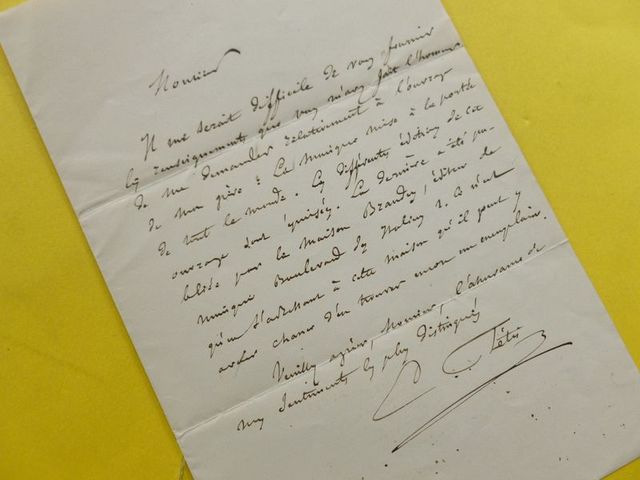 Monsieur
Il me serait difficile de vous fournir
les renseignements que vous m'avez fait l'honneur
de me demander relativement à l'ouvrage
de mon père : La musique mise à la portée
de tout le monde. Les différentes éditions de cet
ouvrage sont épuisées. La dernière a été pu-
bliée par la maison Brandus, éditeur de
musique Boulevard des Italiens 1. Ce n'est
qu'en s'adressant à cette maison qu'il peut y
avoir chance d'en trouver encore un exemplaire.
Veuillez agréer, Monsieur, l'assurance de
mes sentiments les plus distingués
Fétis